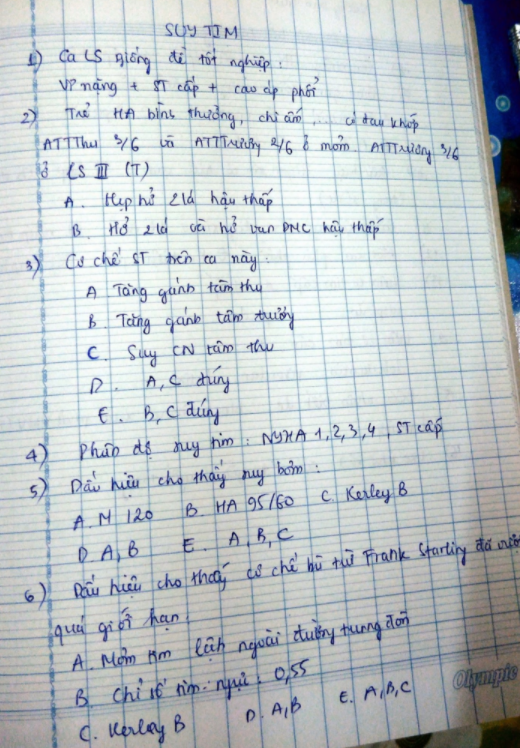 SUY TIM
1) Ca LS giống đề tốt nghiệp:
VP nặng + ST cấp + cao áp phổi
2) Trẻ HA bình thường, chi ấm, ... có đau khớp
ATTThu 3/6 và ATTTrương 2/6 ở mỏm. ATTTrương 3/6
ở LS III (T)
A. Hẹp hở 2 lá hậu thấp
B. Hở 2 lá và hở van ĐMC hậu thấp
3) Cơ chế ST trên ca này:
A Tăng gánh tâm thu
B. Tăng gánh tâm trương
C. Suy CN tâm thu
D. A, C đúng
E. B, C đúng
4) Phân độ suy tim: NYHA 1, 2, 3, 4, ST cấp
5) Dấu hiệu cho thấy suy bơm:
A. M 120 B. HA 95/60 C. Kerley B
D. A, B E. A, B, C
6) Dấu hiệu cho thấy cơ chế bù trừ Frank Starling đã vượt
quá giới hạn.
A. Mỏm tim lệch ngoài đường trung đòn
B Chỉ số tim-ngực: 0,55
C. Kerley B D. A, B E. A, B, C
Olympic